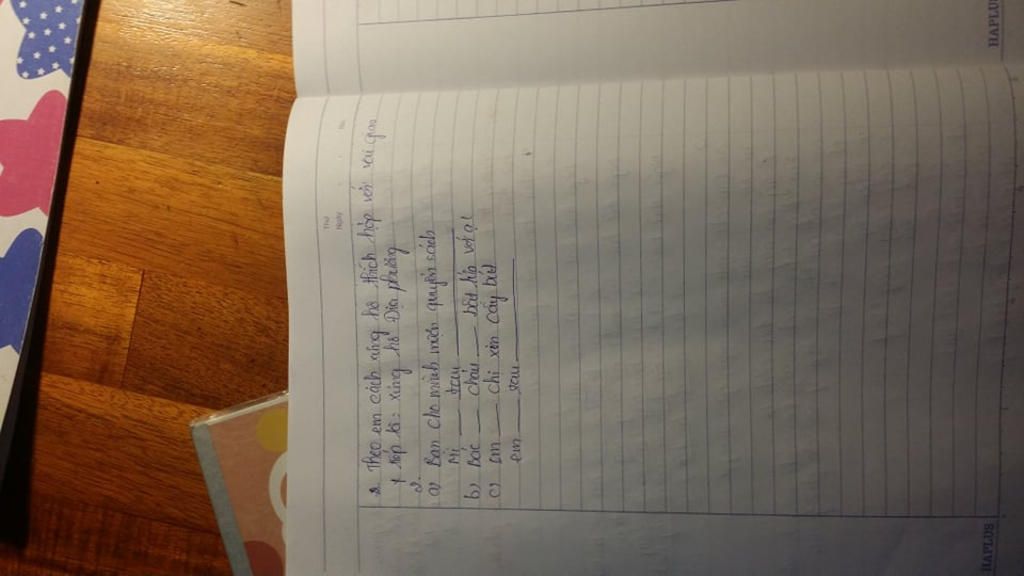 HAPLUS
Thứ
Ngày
No.
2. Theo em cách xưng hô thích hợp với vai giao
tiếp là: xưng hô Địa phương
2
a) Bạn cho mình mượn quyển sách
Mi ___ tau ___
b) Bác ___ cháu ___ bữa tối với ạ!
c) Em ___ chị xin cây bút
em ___ sau ___
HAPLUS